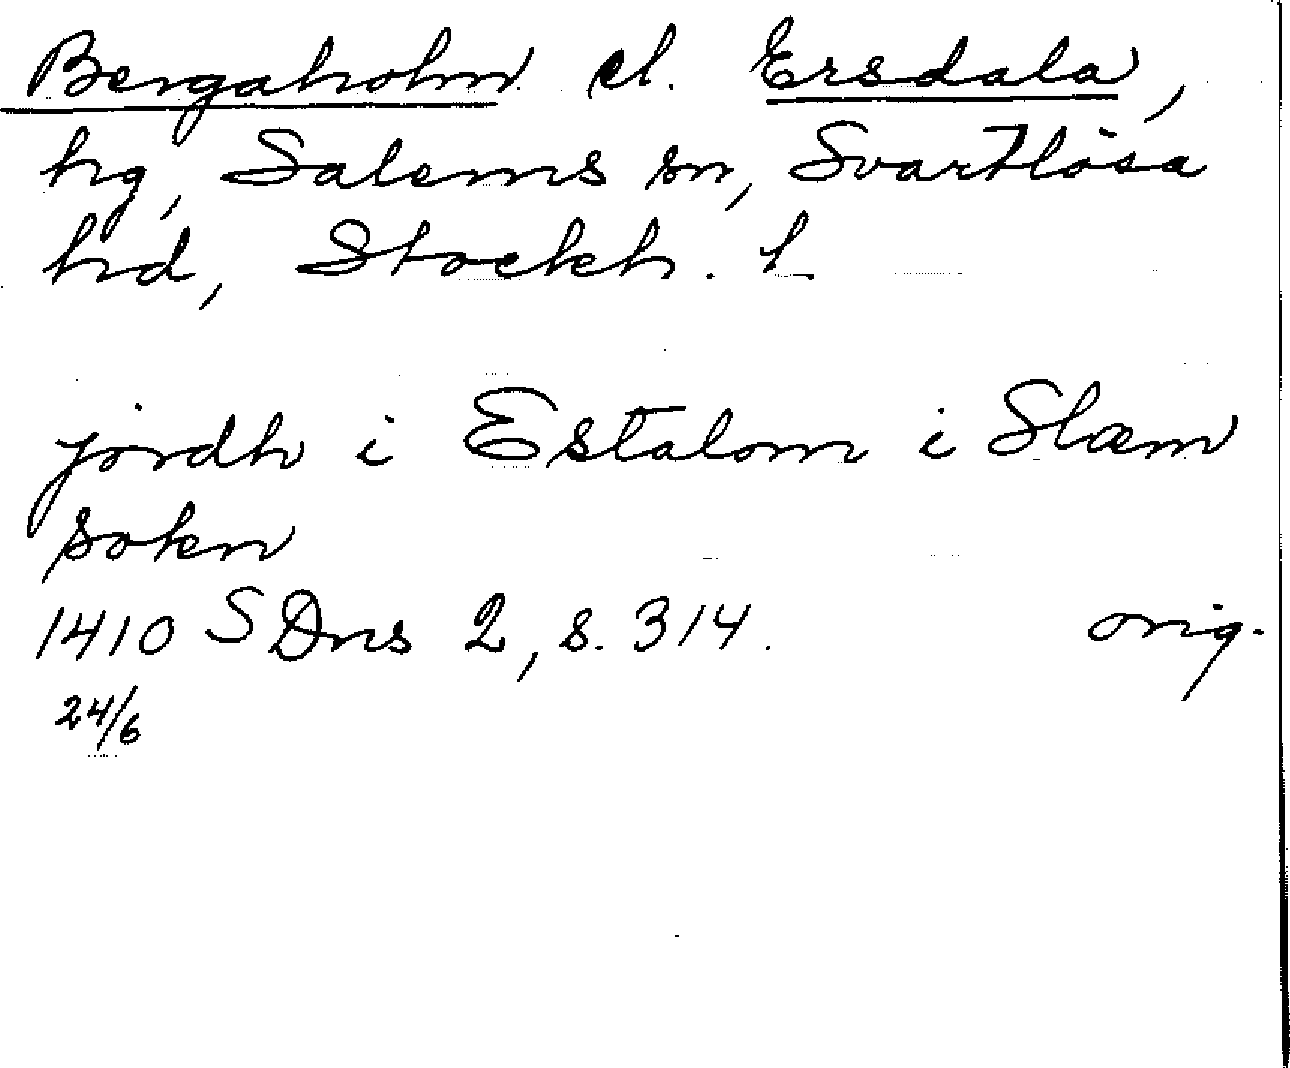 Bergaholm el. Ersdala,
hg, Salems sn, Svartlösa
hd, Stockh. l.
jordh i Estalom i Slæm
sokn
1410 SDns 2, s. 314. orig.
24/6